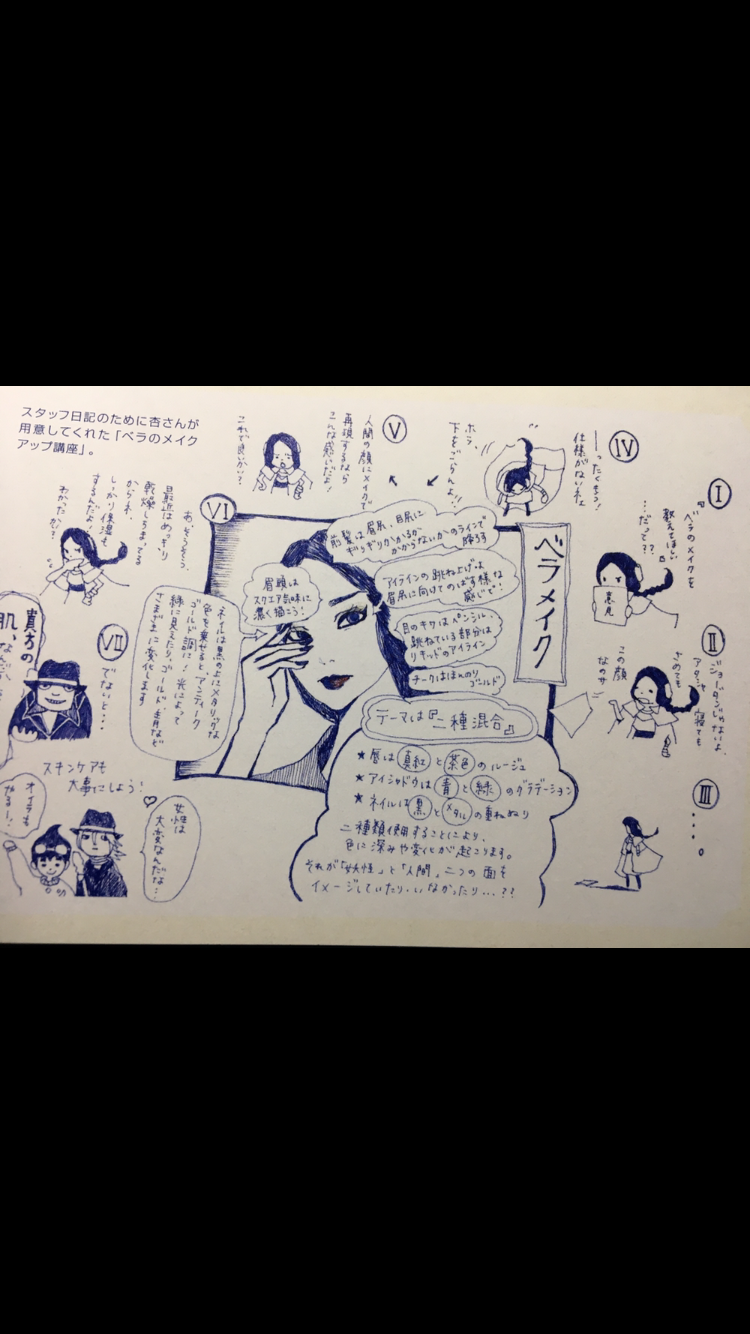 スタッフ日記のために杏さんが
用意してくれた「ベラのメイク
アップ講座」。
Ⅰ
『ベラのメイクを
教えてほしい』
…だって??
悪見
Ⅱ
ジョーダンじゃないよ、
アタシャ寝ても
さめても
この顔
なのサ
Ⅲ
・・・・。
Ⅳ
―ったくもう!
仕様がないネ
ホラ、
下をごらんよ!!
Ⅴ
人間の顔にメイクで
再現するなら
こんな感じだよ!
これで良いかい?
ベラメイク
前髪は眉尻、目尻に
ぎりぎりかかるか
かからないかのラインで
アイラインの跳ね上げは
眉尻に向けてのばす様な
感じで!
目のキワはペンシル・
跳ねている部分は
リキッドのアイライン
チークはほんのり
ゴールド
眉頭は
スクエア気味に
濃く描こう!
ネイルは黒の上にメタリックな
色を乗せると、アンティーク
ゴールド調に!光によって
緑に見えたり、ゴールド、青など
さまざまに変化します
テーマは『二種混合』
★唇は真紅と茶色のルージュ
★アイシャドウは青と緑のグラデーション
★ネイルは黒とメタルの重ねぬり
二種類使用することにより、
色に深みや変化が起こります。
それが「妖怪」と「人間」二つの面を
イメージしていたり・いなかったり…??
Ⅵ
あ、そうそう、
最近はめっきり
乾燥しちまってる
からネ、
しっかり保湿も
するんだよ!
わかったかい?
Ⅶ
でないと…
貴方の
肌、
なんだい
スキンケアも
大事にしよう!
オイラも
やるー!
女性は
大変なんだな…